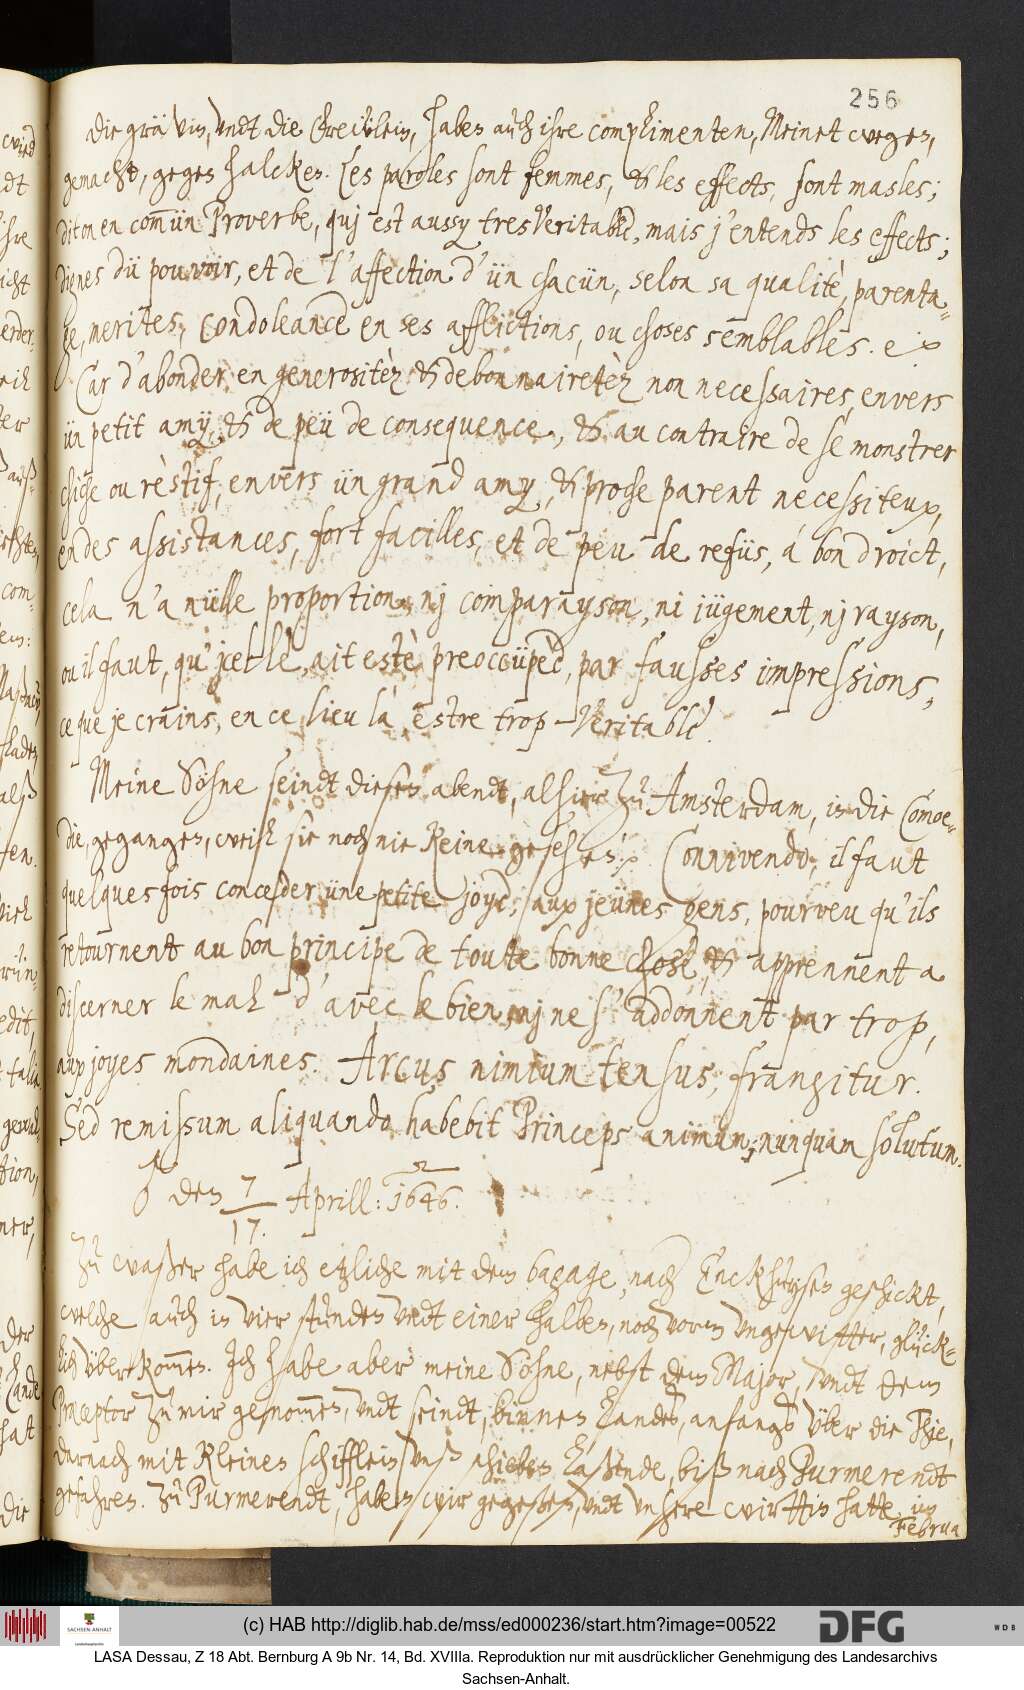 256
Die grävin, undt die Freẅlein, haben auch ihre complimenten, Meinet wegen,
gemacht, gegen halcken. Les paroles sont femmes, & les effects, sont masles;
dit on en commün Proverbe, quj est aussy tres Veritable, mais j'entends les effects;
dignes dü pouvoir, et de l'affection d'ün chacün, selon sa qualitè, parenta-
ge, merites, Condoleance en ses afflictions, ou choses semblables.
Car d'abonder, en generositèz & debonnairetèz non necessaires, envers
ün petit amy, & de peü de consequence, & au contraire de se monstrer
chiche ou rèstif, envers ün grand amy, & proche parent necessiteux,
en des assistances, fort facilles, et de peu de refüs, á bon droict,
cela n'a nülle proportion, nj comparayson, ni jügement, nj rayson,
ou il faut, qu'jcelle, ait estè preoccüpèe, par fausses impressions,
ce que je crains, en ce lieu là estre trop Veritable.
Meine Söhne seindt diesen abendt, alhier zu Amsterdam, in die Comoe-
die, gegangen, weil sie noch nie keine gesehen. Connivendo, il faut
quelques fois conceder üne petite joye, aux jeünes gens, pourveu qu'ils
retournent au bon principe de toute bonne chose, & apprennent a
discerner le mal d'avec le bien, nj ne s'addonnent par trop,
aux joyes mondaines. Arcus nimium tensus, frangitur.
Sed remissum aliquando habebit Princeps animum, nunquam solutum.
♂ den 7/17. Aprill: 1646.
Zu waßer habe ich etzliche mit dem bagage, nach Enckhuysen geschickt,
welche auch in vier stunden undt einer halben, noch vorm ungewitter, glück-
lich überkommen. Ich habe aber meine Söhne, nebst dem Major, undt dem
Præceptor zu mir genommen, undt seindt, binnen Landes, anfangs über die Thie,
darnach mit kleinen schifflein, unß ziehen laßende, biß nach Purmerendt
gefahren. Zu Purmerendt, haben wir gegeßen, undt unsere wirttin hatte im
Februa
(c) HAB http://diglib.hab.de/mss/ed000236/start.htm?image=00522
SACHSEN-ANHALT
DFG
WDB
LASA Dessau, Z 18 Abt. Bernburg A 9b Nr. 14, Bd. XVIIIa. Reproduktion nur mit ausdrücklicher Genehmigung des Landesarchivs
Sachsen-Anhalt.